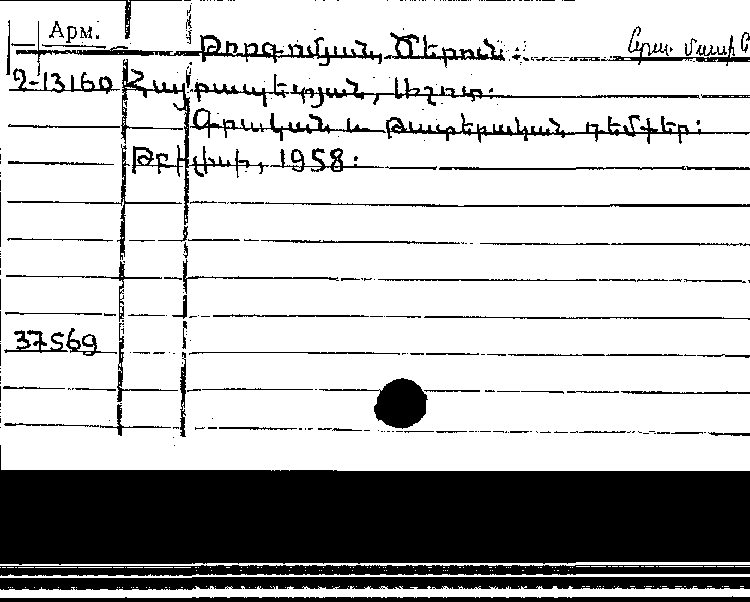 Арм.
Թորգոմյան, Ծերուն:
2-13160 Հայրապետյան, Աշոտ:
Գրական և թատերական դեմքեր:
Թբիլիսի, 1958:
37569